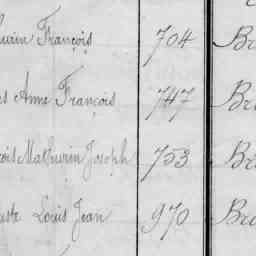 François 704 Br
Anne François 747 Br
Mathurin Joseph 753 Br
Louis Jean 970 Bre